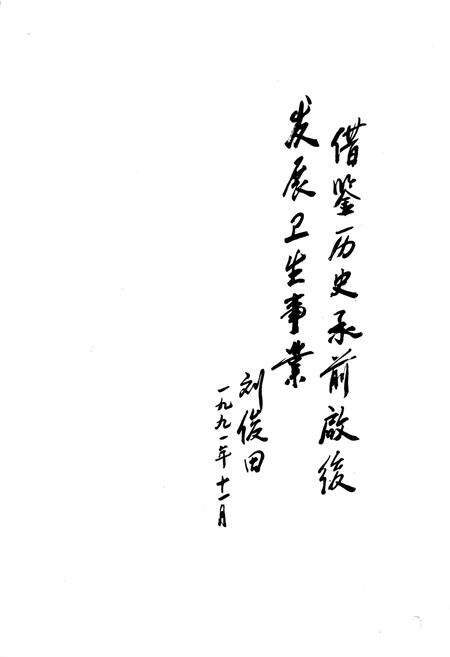 借鉴历史承前啟後
发展卫生事業
刘俊田
一九九一年十一月